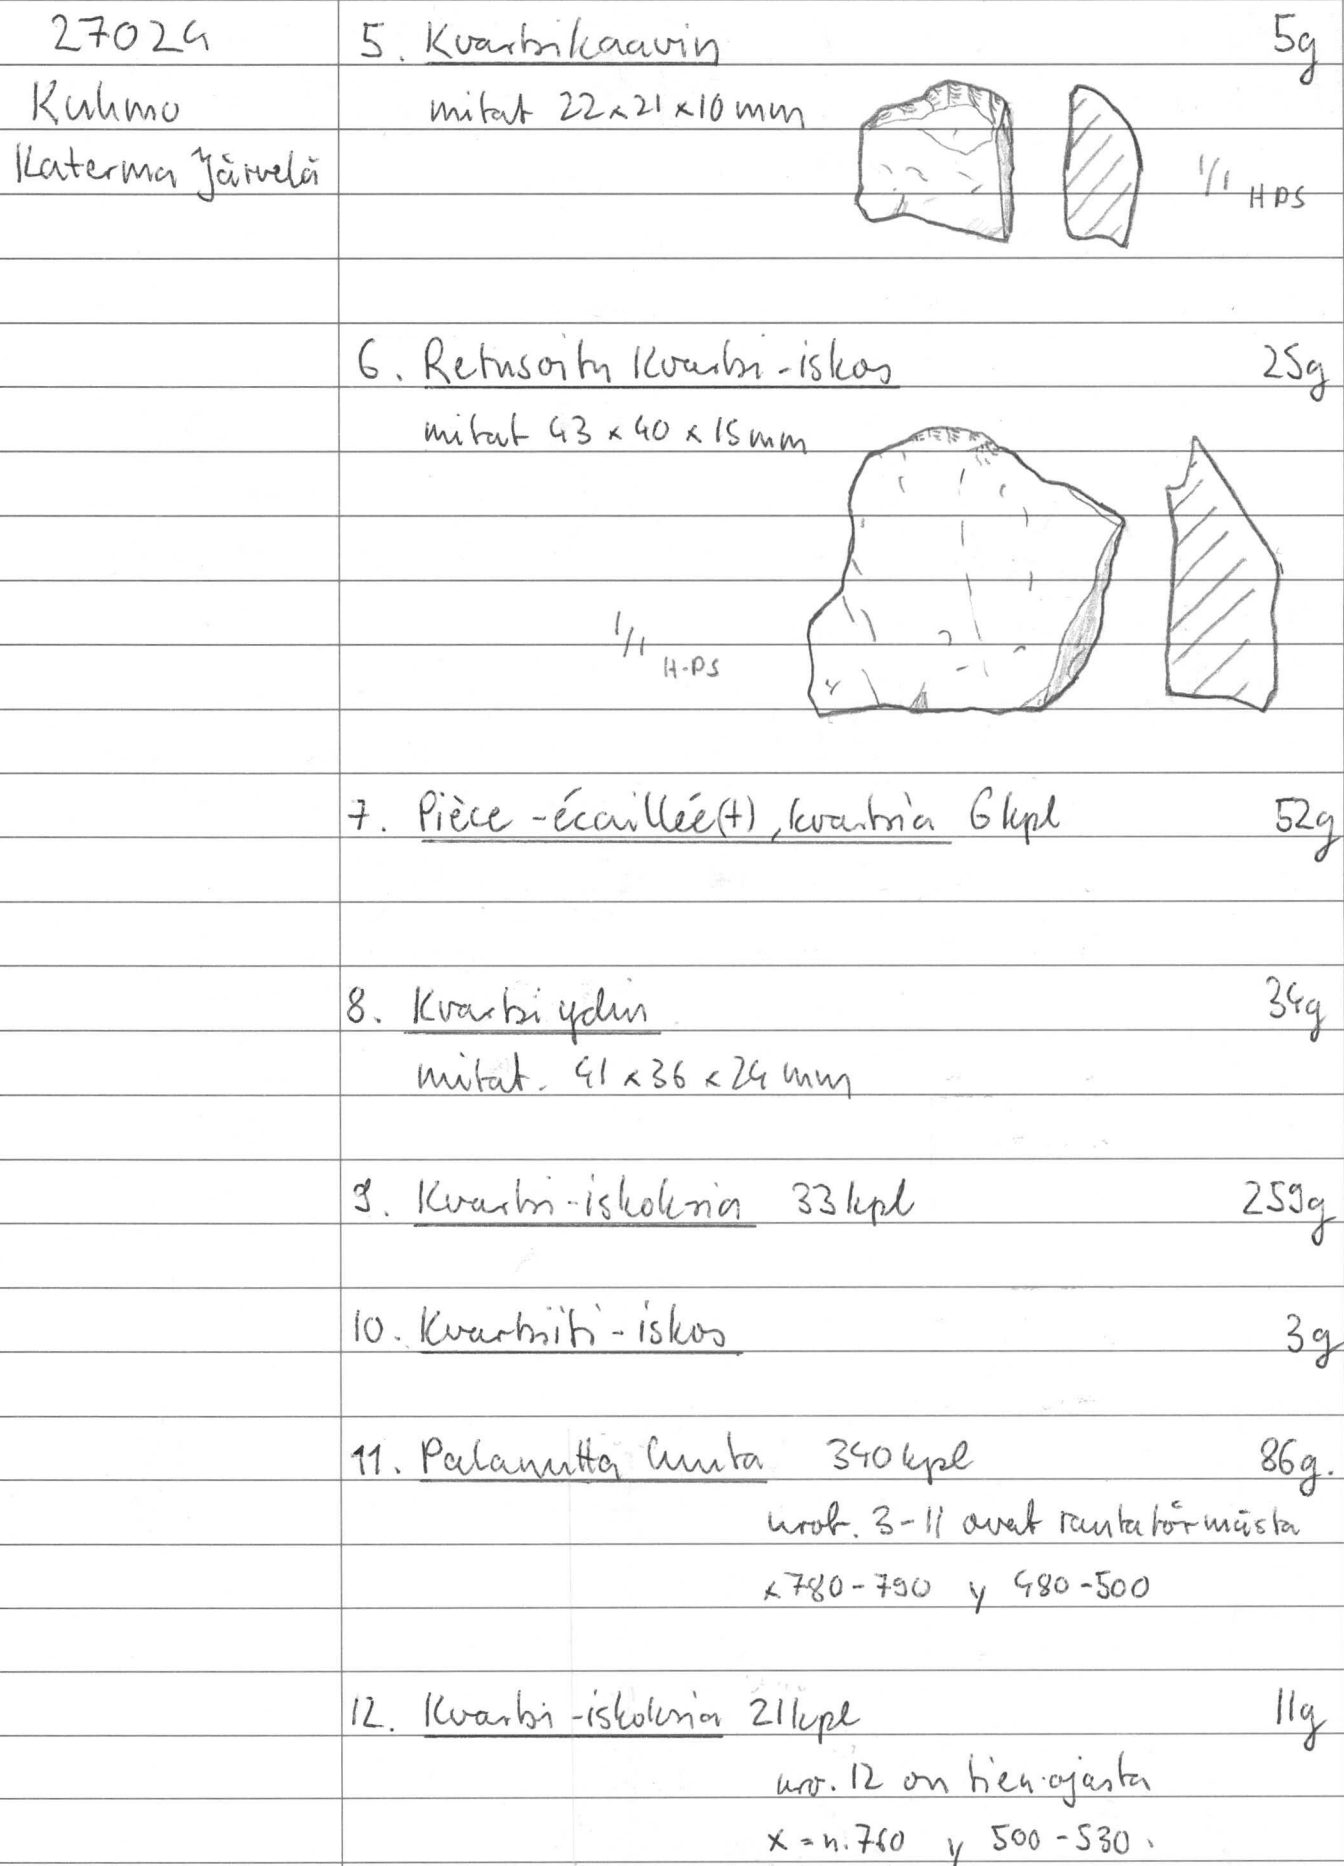 27024
Kuhmo
Katerma Järvelä
5. Kvartsikaavin 5g
mitat 22x21x10 mm
1/1 HPS
6. Retusoitu kvartsi-iskos 25g
mitat 43 x 40 x 15 mm
1/1 H-PS
7. Pièce-écaillée(t), kvartsia 6 kpl 52g
8. Kvartsiydin 34g
mitat. 41 x 36 x 24 mm
9. Kvartsi-iskoksia 33 kpl 259g
10. Kvartsiitti-iskos 3g
11. Palanutta luuta 340 kpl 86g.
nrot. 3-11 ovat rantatörmästä
x 780-790 y 480-500
12. Kvartsi-iskoksia 21 kpl 11g
nro. 12 on tien ojasta
x = n. 760 y 500-530.